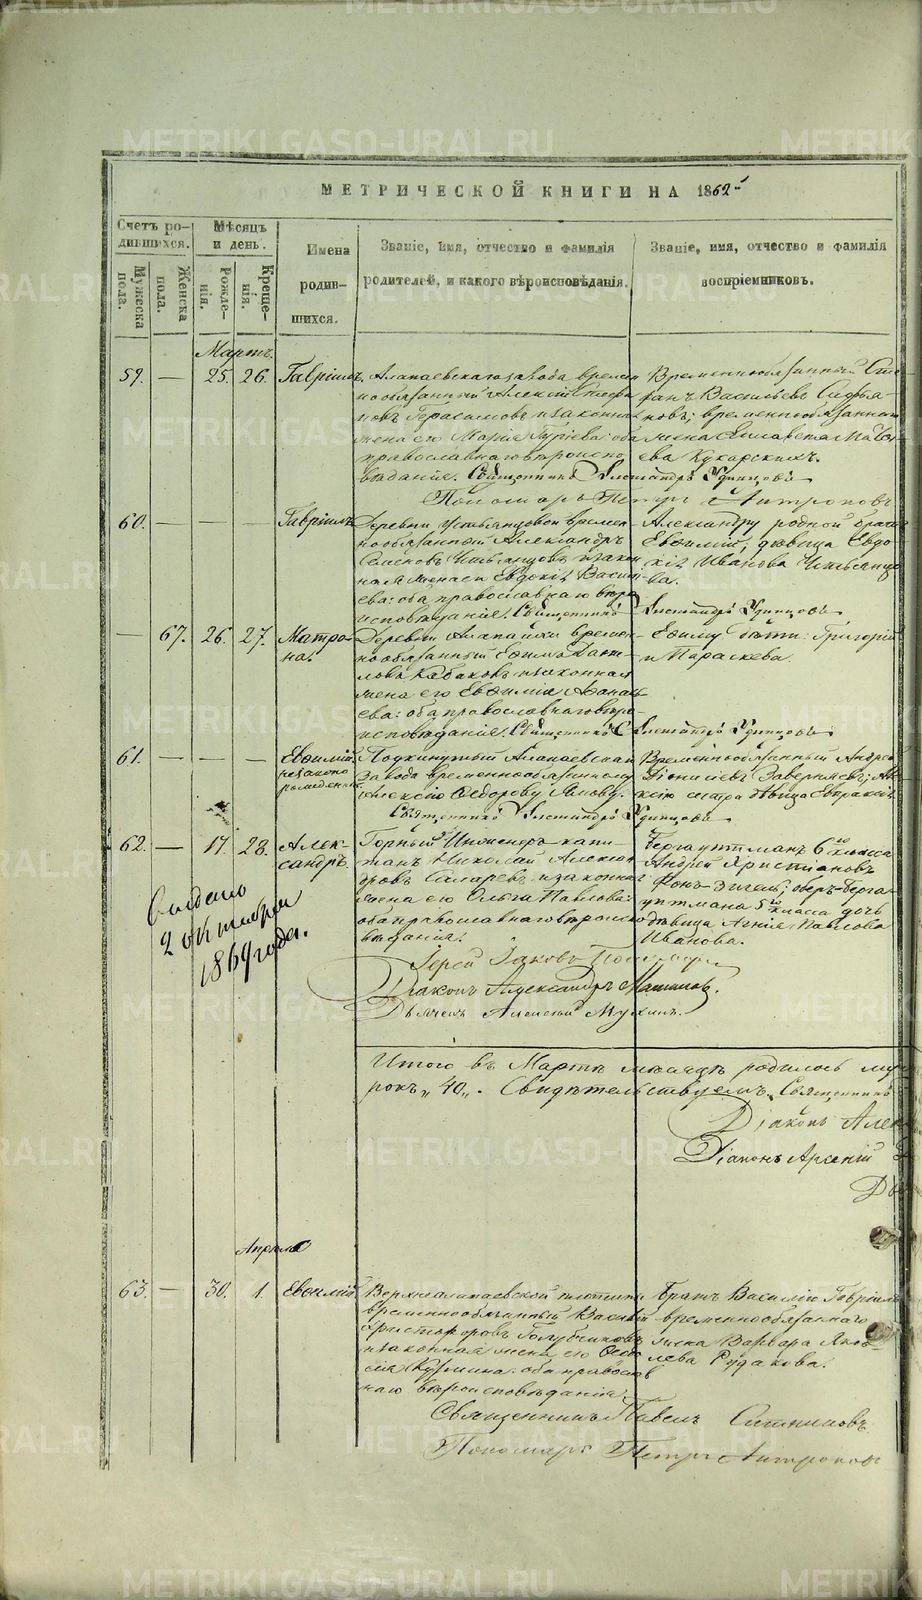 МЕТРИЧЕСКОЙ КНИГИ НА 1862-й
Счетъ ро-
дившихся.
Мужеска
пола.
Женска
пола.
Мѣсяцъ
и день.
Рожде-
нія.
Креще-
нія.
Имена
родив-
шихся.
Званіе, имя, отчество и фамилія
родителей, и какого вѣроисповѣданія.
Званіе, имя, отчество и фамилія
воспріемниковъ.
Мартъ.
59. — 25. 26. Гавріилъ
Алапаевскаго завода времен
нообязанный Алексій
Герасимовъ и законная
жена его Марія Гуріева: оба
православнаго вѣроиспо
вѣданія. Священникъ Александръ Удинцовъ
Временнообязанный Сте
фанъ Васильевъ
новъ; временнообязаннаго
жена Елисавета
ева Кукарскихъ.
Пономарь Петръ Антроповъ
60. — — — Гавріилъ
Деревни Устьянцовой времен
нообязанный Александръ
Семеновъ Устьянцовъ и закон
ная жена его Евдокія Васил
ева: оба православнаго вѣро
исповѣданія. Священникъ Александръ Удинцовъ
Александру родной братъ
Евѳимій, дѣвица Евдо
кія Иванова Устьянцо
ва.
— 67. 26. 27. Матро-
на.
Деревни Алапаихи времен
нообязанный Ефимъ
ловъ Кабаковъ и законная
жена его Евфимія Афанась
ева: оба православнаго вѣро-
исповѣданія. Священникъ Александръ Удинцовъ
Ефиму дѣти: Григорій
и Параскева.
61. — — — Евѳимій,
незаконно
рожденный.
Подкинутый Алапаевскаго
завода временнообязанному
Алексію Ѳедорову
Священникъ Александръ Удинцовъ
Временнообязанный Андрей
Діонисіевъ
ксію сестра дѣвица Евпраксія
62. — 17. 28. Алек-
сандръ.
Горный Инженеръ капи-
танъ Николай Алексан
дровъ и законная
жена его Ольга Павлова:
оба православнаго вѣроиспо
вѣданія.
Бергауптманъ 6го класса
Андрей Христіановъ
Фонъ-Зигель; оберъ-берга
уптмана 5го класса дочь
дѣвица Агнія Павлова
Иванова.
Выдано
2 октября
1869 года.
Іерей Іаковъ
Діаконъ Александръ
Дьячекъ Алексій Мухинъ.
Итого въ Мартѣ мѣсяцѣ родилось му
рокъ „40„. Свидѣтельствуемъ. Священникъ
Діаконъ Алек
Діаконъ Арсеній
Дь
Апрѣль
63. — 30. 1. Евѳимій
Верхнеалапаевской плотины
временнообязанный Василій
Христофоровъ Голубчиковъ
и законная жена его Ѳеодо
сія Кузмина: оба православ
наго вѣроисповѣданія.
Братъ Василія Гавріилъ
временнообязаннаго
жена Варвара Яков-
лева Рудакова.
Священникъ Павелъ Ситниковъ
Пономарь Петръ Антроповъ
METRIKI.GASO-URAL.RU